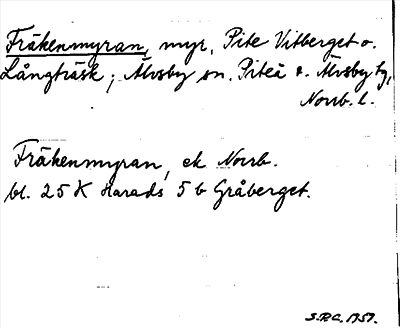 Fräkenmyran, myr, Pite Vitberget o.
Långträsk; Älvsby sn. Piteå o. Älvsby tg,
Norrb. l.
Fräkenmyran, ek Norrb.
bl. 25 K Harads 5 b Gråberget.
S.R.C. 1957.